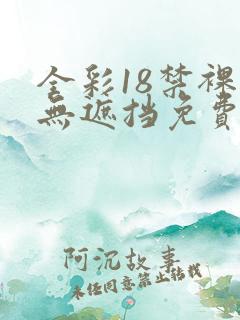 全彩18禁裸
無遮挡免費
阿沉故事
未经同意禁止转载